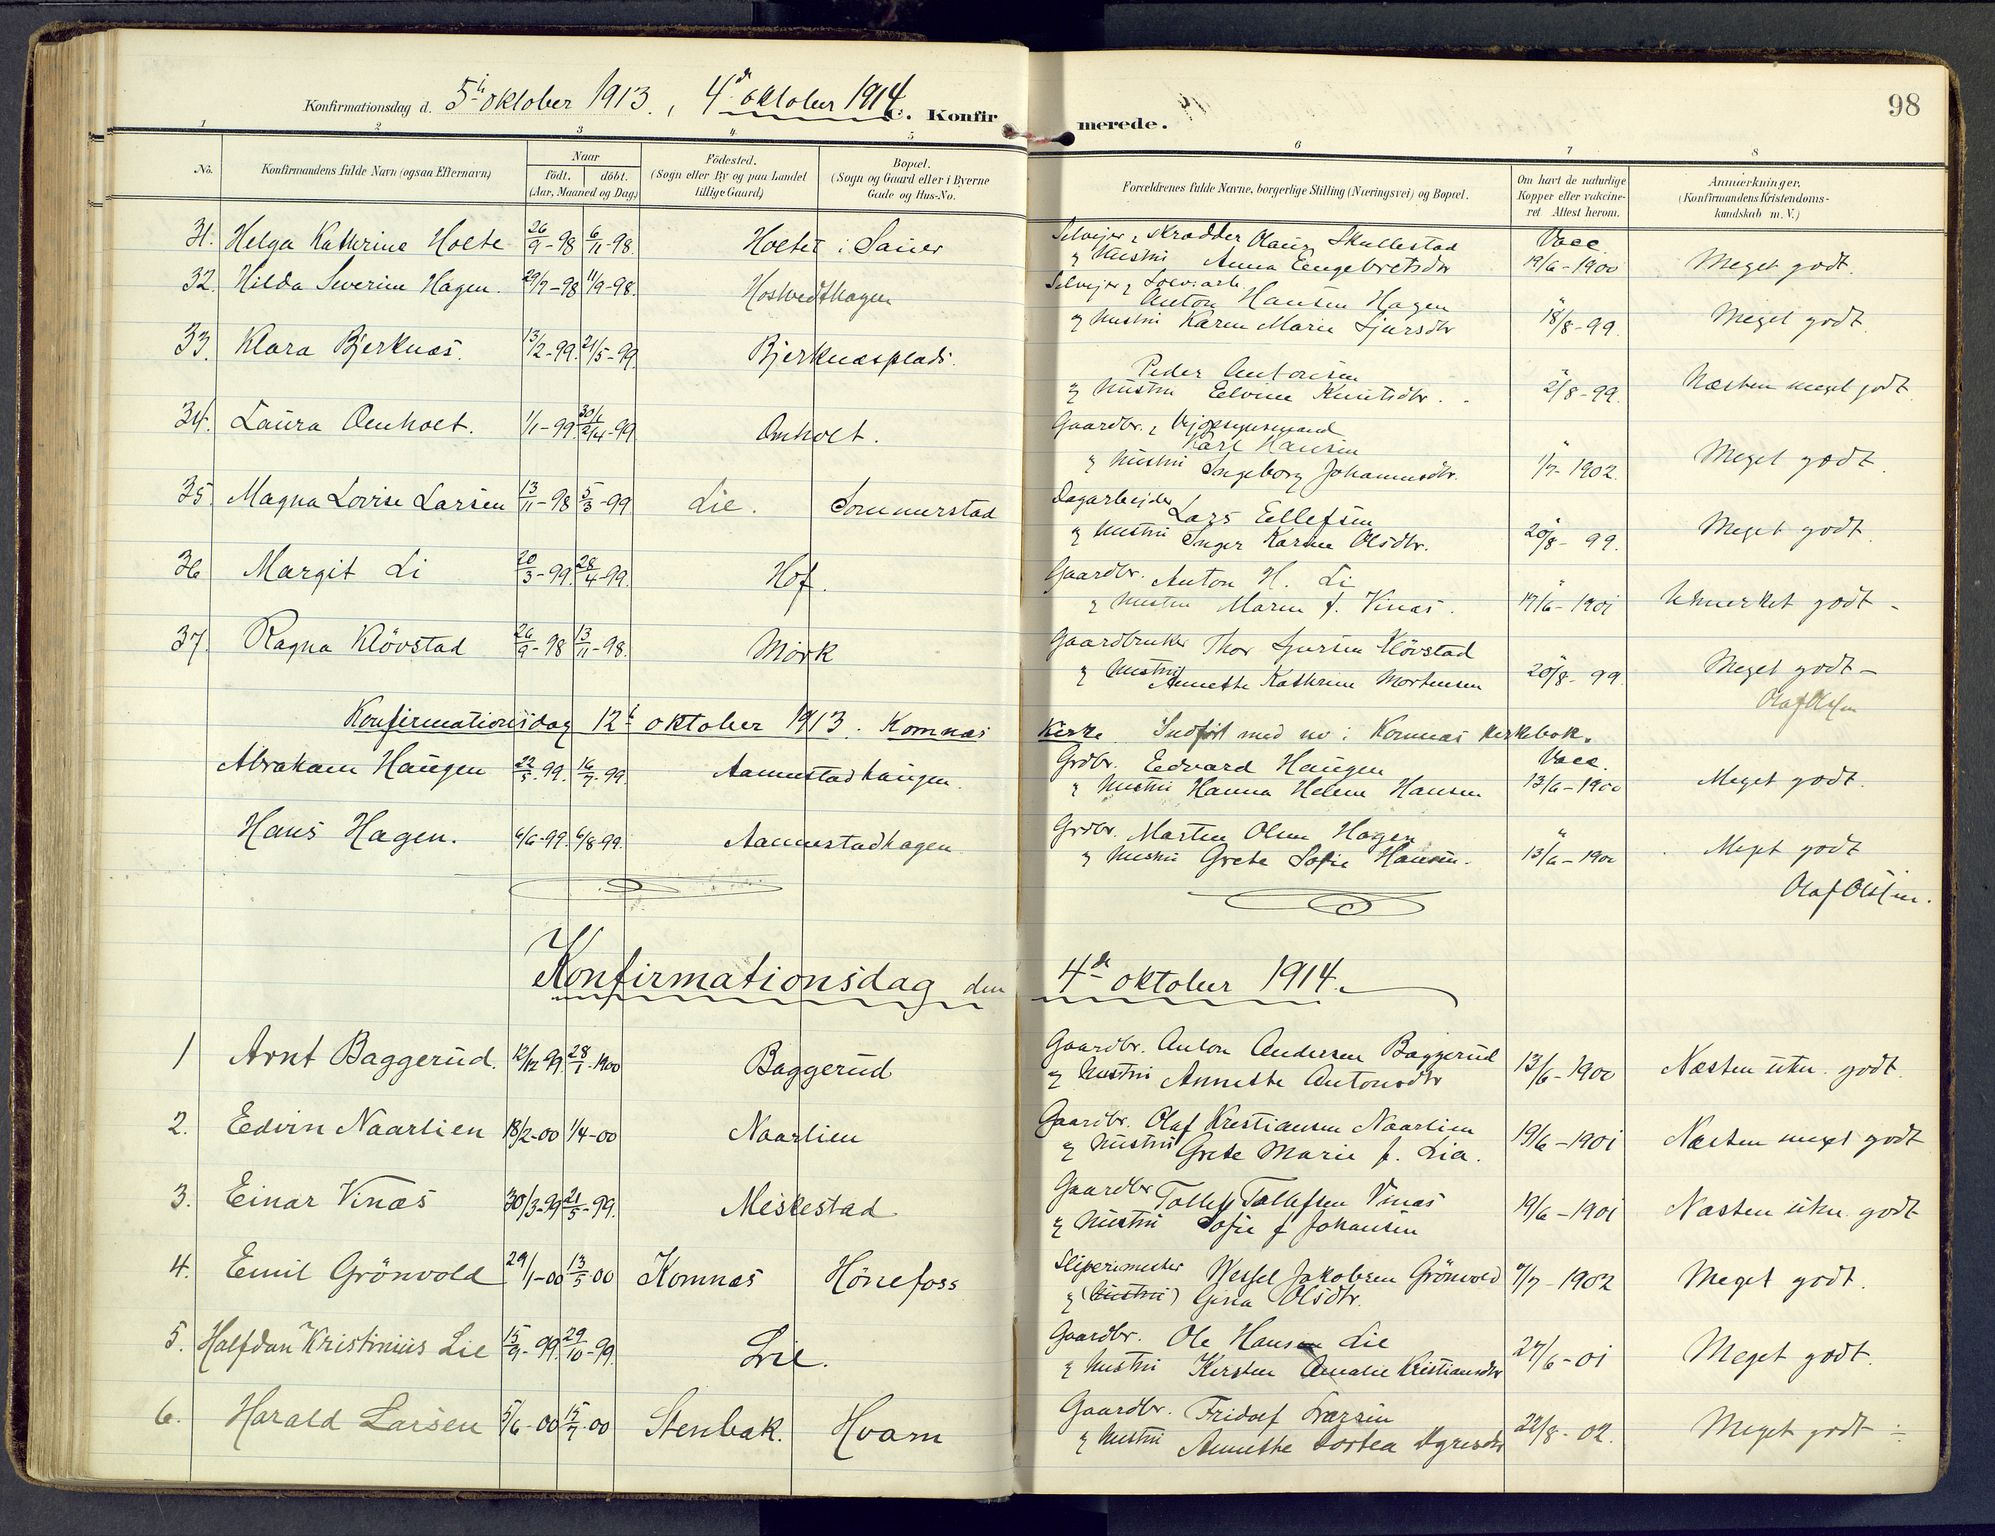 98
Konfirmationsdag d. 5te oktober 1913, 4de oktober 1914
C. Konfirmerede.
1 2 3 4 5 6 7 8
No.
Konfirmandens fulde Navn (ogsaa Efternavn)
Naar
födt. döbt.
(Aar, Maaned og Dag)
Födested.
(Sogn eller By og paa Landet
tillige Gaard)
Bopæl.
(Sogn og Gaard eller i Byerne
Gade og Hus-No.
Forældrenes fulde Navne, borgerlige Stilling (Næringsvei) og Bopæl.
Om havt de naturlige
Kopper eller vakcine-
ret Attest herom.
Anmærkninger.
(Konfirmandens Kristendoms-
kundskab m. V.)
31. Helga Kathrine Holte 26/9-98 6/11-98. Holtet i Sauer Selveier, skrædder Olaus Skullestad Vacc.
og hustru Anna Engebretsdtr 19/6-1900 Meget godt.
32. Hilda Severine Hagen. 29/7-98 11/9-98. Hostvedthagen Selveier,
Anton Hansen Hagen
og hustru Karen Marie Sjursdtr 18/8-99. Meget godt.
33. Klara Bjerknæs. 13/2-99. 21/5-99. Bjerknæsplads. Peder Antonsen
og hustru Elvine Knutsdtr. 2/8-99. Næsten meget godt.
34. Laura Omholt. 1/1-99. 30/1 2/4-99 Omholt. Gaardbr.,
Karl Hansen
og hustru Ingeborg Johannesdtr. 1/7-1902. Meget godt.
35. Magna Lovise Larsen 13/11-98 5/3-99 Lie. Sommerstad Dagarbeider
Lars Ellefsen
og hustru Inger Karine Olsdtr. 20/8-99. Meget godt.
36 Margit Li 20/3-99. 28/4-99. Hof. Gaardbr. Anton H. Li
og hustru Maren f. Vinæs. 19/6-1901 Udmerket godt-
37. Ragna Klövstad 26/9-98 13/11-98. Mörk Gaardbruker Thor Sjursen Klövstad
og hustru Annette Kathrine Mortensen 20/8-99. Meget godt-
Olaf Olsen
Konfirmationsdag 12te oktober 1913. Komnæs Kirke Indfört med no i Komnæs kirkebok.
Abraham Haugen 22/5-99. 16/7-99. Aannestadhaugen. Grdbr. Edvard Haugen Vacc.
og hustru Hanna Helene Hansen 13/6-1900 Meget godt.
Hans Hagen. 6/6-99. 6/8-99. Aannestadhagen Grdbr. Marten Olsen Hagen
og hustru Grete Sofie Hansen. 13/6-1900 Meget godt
Olaf Olsen.
Konfirmationsdag den 4de oktober 1914.
1 Arnt Baggerud. 12/12 99. 28/1-1900 Baggerud Gaardbr. Anton Andersen Baggerud
og hustru Annette Antonsdtr 13/6-1900 Næsten ukn. godt.
2. Edvin Naarlien 18/2-00 1/4-00 Naarlien Gaardbr. Olaf Kristiansen Naarlien
og hustru Grete Marie f. Lia. 19/6-1901 Næsten meget godt
3. Einar Vinæs 30/3-99 21/5-99. Meskestad Gaardbr Tollef Tollefsen Vinæs
og hustru Sofie f Johansen 19/6-1901 Næsten ukn. godt
4. Emil Grönvold 29/1-00 13/5-00 Komnæs Hönefoss Sliperimester Wessel Jakobsen Grönvold
og (hustru) Gina Olsdtr. 7/7-1902 Meget godt.
5. Halfdan Kristinius Lie 15/9-99. 29/10-99. Lie. Gaardbr. Ole Hansen Lie
og hustru Kirsten Amalie Kristiansdtr 27/6-01 Meget godt.
6. Harald Larsen 5/6-00 15/7-00 Stenbak. Hvam Gaardbr. Fridolf Larsen
og hustru Annette Dortea 22/8-02. Meget godt-